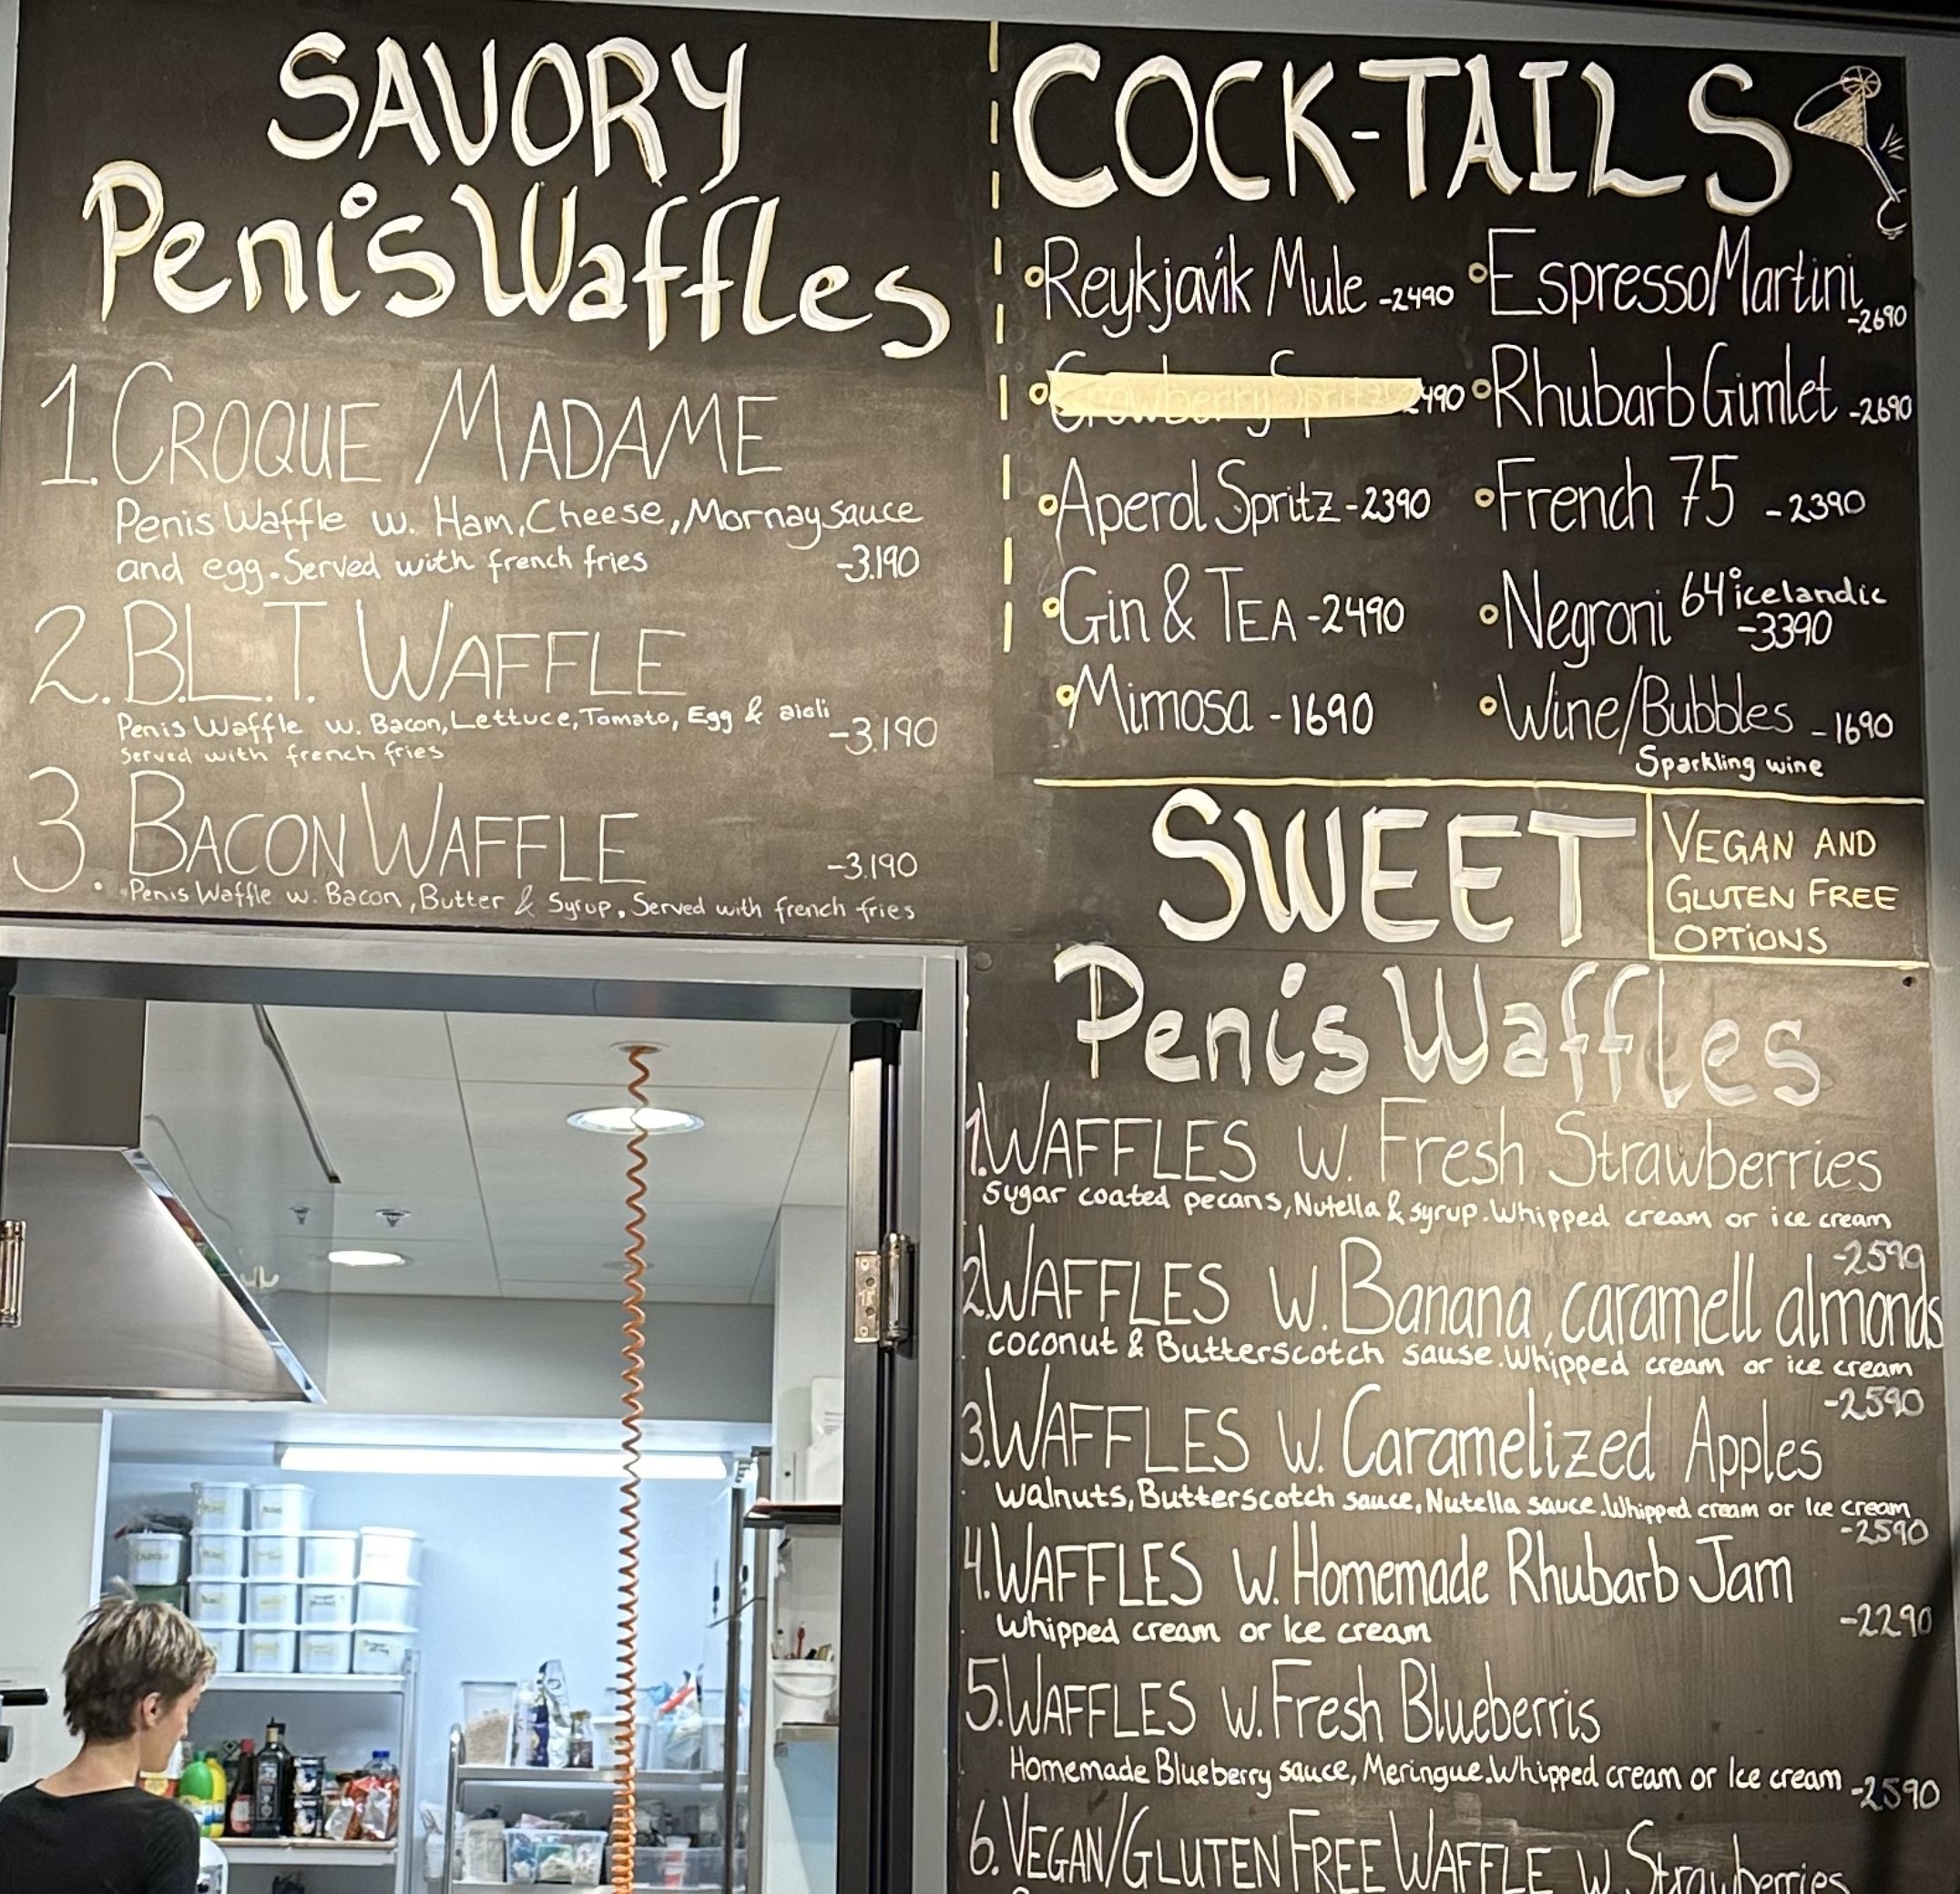 SAVORY
Penis Waffles
1. CROQUE MADAME
Penis Waffle w. Ham, Cheese, Mornay sauce
and egg. Served with french fries -3.190
2. B.L.T. WAFFLE
Penis Waffle w. Bacon, Lettuce, Tomato, Egg & aioli -3.190
Served with french fries
3. BACON WAFFLE -3.190
Penis Waffle w. Bacon, Butter & Syrup. Served with french fries
COCK-TAILS
Reykjavík Mule -2490
Crowberry Spritz 2490
Aperol Spritz -2390
Gin & TEA -2490
Mimosa -1690
Espresso Martini -2690
Rhubarb Gimlet -2690
French 75 -2390
Negroni 64° icelandic
-3390
Wine/Bubbles -1690
Sparkling wine
SWEET
VEGAN AND
GLUTEN FREE
OPTIONS
Penis Waffles
1. WAFFLES W. Fresh Strawberries
Sugar coated pecans, Nutella & syrup. Whipped cream or ice cream
-2590
2. WAFFLES W. Banana, caramell almonds
coconut & Butterscotch sause. Whipped cream or ice cream
-2590
3. WAFFLES W. Caramelized Apples
Walnuts, Butterscotch sauce, Nutella sauce. Whipped cream or Ice cream
-2590
4. WAFFLES W. Homemade Rhubarb Jam
Whipped cream or Ice cream -2290
5. WAFFLES W. Fresh Blueberris
Homemade Blueberry sauce, Meringue. Whipped cream or Ice cream -2590
6. VEGAN/GLUTEN FREE WAFFLE W. Strawberries